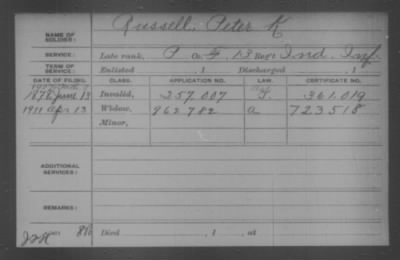 Russell, Peter K
NAME OF SOLDIER:
SERVICE: Late rank, P Co. F, 13 Reg't Ind. Inf.
TERM OF SERVICE: Enlisted , 1 Discharged , 1
DATE OF FILING. CLASS. APPLICATION NO. LAW. CERTIFICATE NO.
1878 June 13 Invalid, 257.007 361.019
1911 Apr 13 Widow, 962782 a 723518
Minor,
ADDITIONAL SERVICES:
REMARKS:
Died , 1 , at